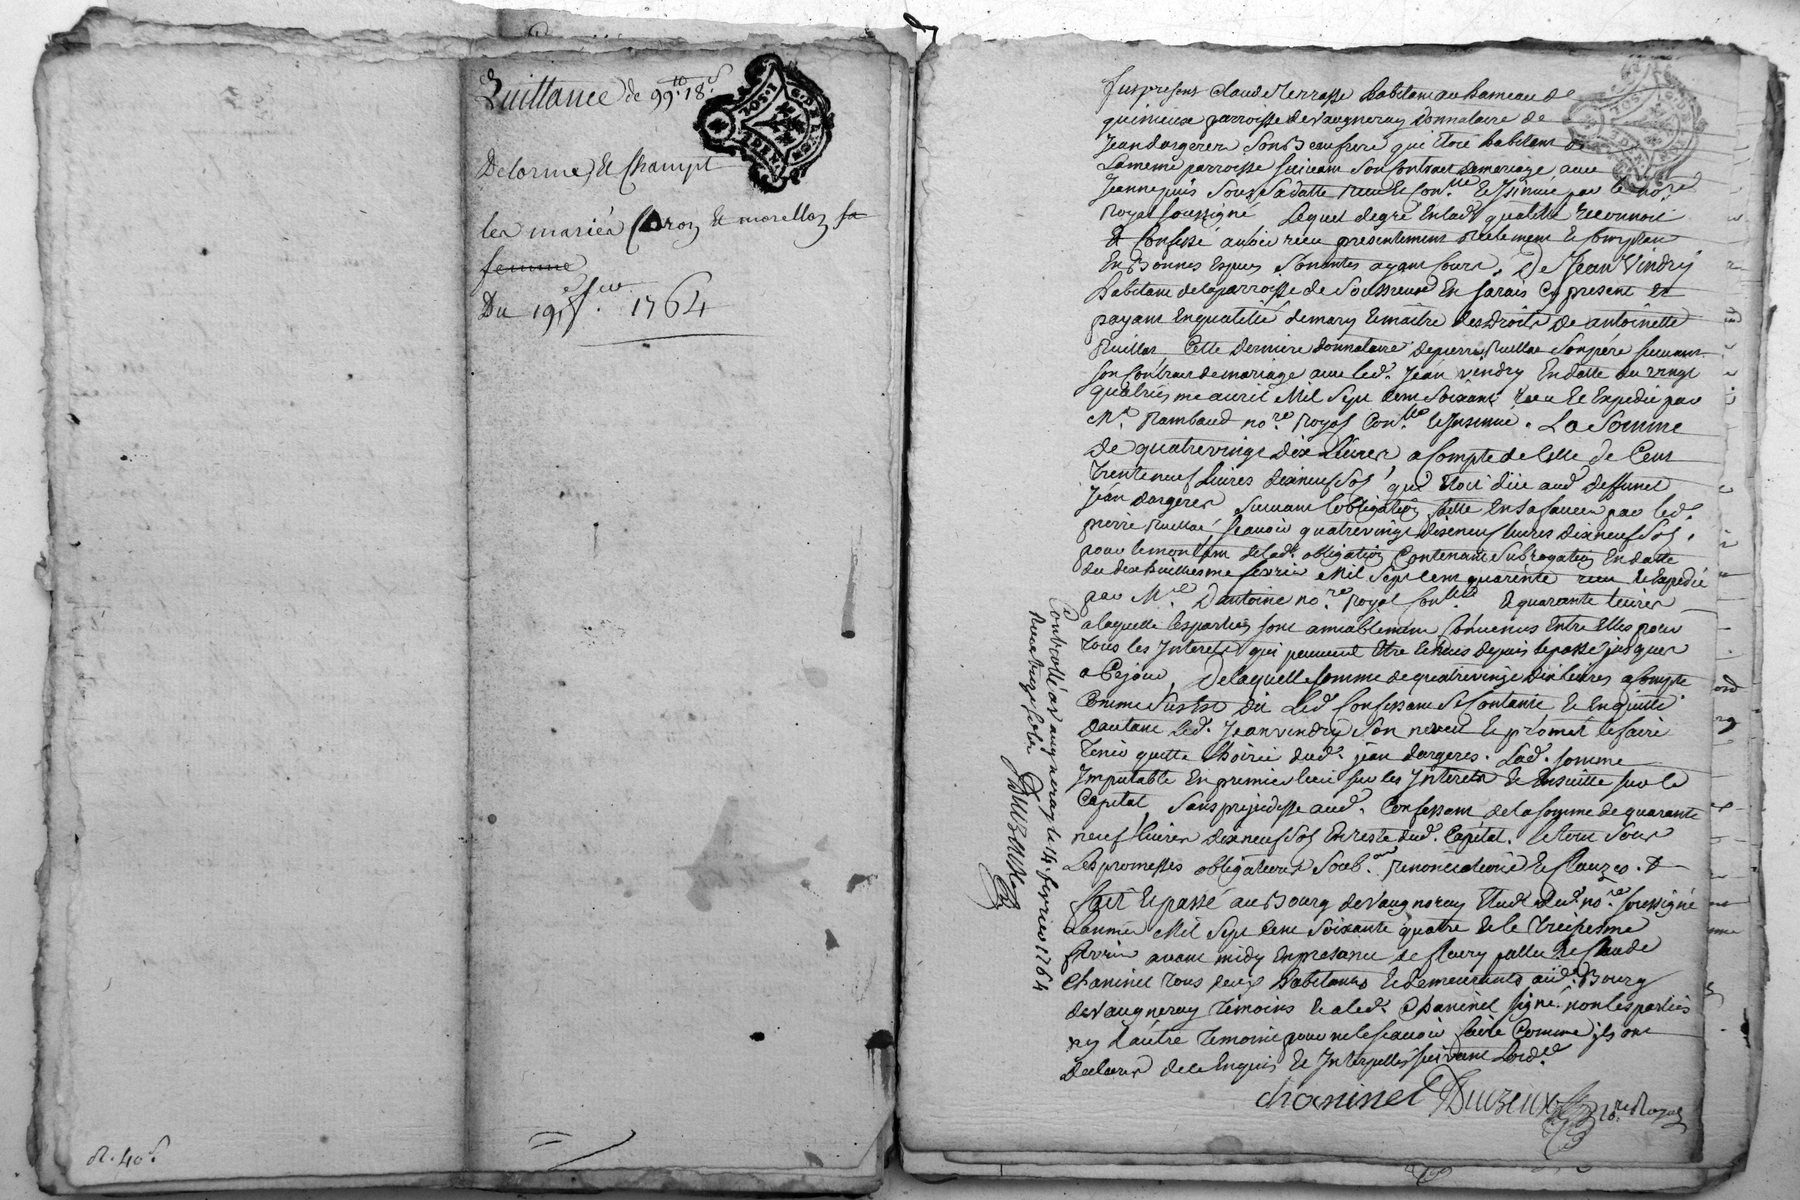 Quittance de 99.tt 18.s
Delorme, et Champt
les mariés Caron et morellon sa
femme
Du 19.e fev. 1764
R. 40s.
Fut present Claude Terrasse habitant au hameau de
quinieux parroisse de Vaugneray Donnataire de
Jean dargeres Son Beaufrere qui étoit habitant de
La meme parroisse suivant Son Contract de mariage avec
Jeanne puis Sous Sa datte receu et Con.llé et Jsinué par le no.re
Royal soussigné Lequel de gré En lad. qualité reconnoit
Et Confessé avoir receu presentement reelement et Comptant
En Bonnes Especes Sonantes ayant Cours, De Jean Vindry
habitant de la parroisse de Soussieux En Jarais Cy present et
payant En qualité de mary et maitre des Droits de antoinette
Ruellat, Cette derniere donnataire de pierre Ruellat Son pére suivant
son Contract de mariage avec led. Jean Vindry En datte du vingt
quatriéme avril Mil Sept cent Soixante receu Et Expedié par
M.e Rambaud no.re Royal Con.llé et Jnsinué. La Somme
De quatrevingt Dix Livres a Compte de Celle de Cent
trente neuf Livres dixneuf Sols qui étoit düe aud. deffunct
Jean dargeres suivant l'obligation faitte En Sa faveur par led.
pierre Ruellat, Scavoir quatrevingt dixneuf livres dixneuf Sols
pour le montant de lad. obligation Contenant Subrogation En datte
du dixhuitiesme fevrier Mil Sept cent quarente receu et Expedié
par M.e Dantoine no.re royal Con.llé Et quarante livres
a laquelle les parties sont amiablement Convenues Entre Elles pour
tous les Jnterets qui peuvent être Echus depuis le passé jusques
a Cejour, De laquelle somme de quatrevingt dix Livres a Compte
Comme Susest dit Led. Confessant Se Contante et En quitte
dautant led. Jean vindry Son neveu et promet le faire
tenir quitte l'hoirie dud. jean dargeres. Lad. somme
Jmputable En premier lieu sur les Jnterets et Ensuitte sur le
Capital, Sans prejudisse aud. Confessant de la somme de quarante
neuf Livres dixneuf Sols En reste dud. Capital. Et tout Sous
Les promesses obligations Soub.ons renonciations Et Clauzes. &
fait Et passé au Bourg de Vaugneray Etude du no.re soussigné
L'année Mil Sept cent Soixante quatre et le treiziesme
fevrier avant midy En presance de fleury pallu et Claude
Chaninel tous deux habitants et demeurants aud. Bourg
de Vaugneray témoins et a led. Chaninel signé, non les parties
ny l'autre témoin pour ne le scavoir faire Comme ils ont
Declaré de ce Enquis et Jnterpellés suivant L'ord.ce
Chaninel no.re Royal
Controllé a vaugneray le 14. fevrier 1764